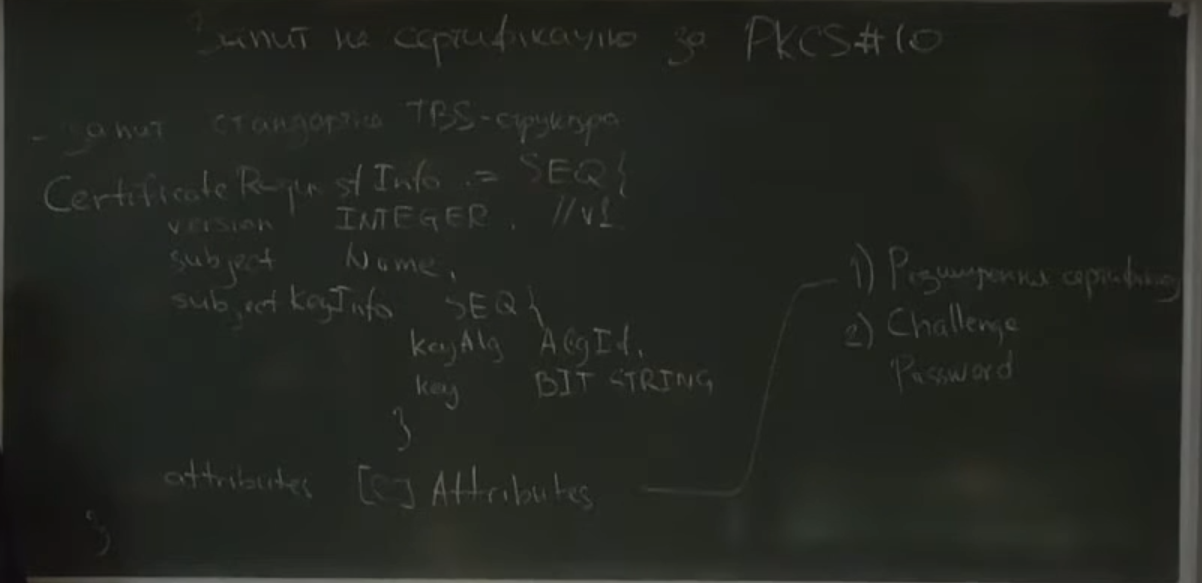 Запит на сертифікацію за PKCS#10
- запит стандартна TBS-структура
CertificateRequestInfo := SEQ{
version INTEGER, //v1
subject Name,
subjectKeyInfo SEQ{
keyAlg AlgId,
key BIT STRING
}
attributes [0] Attributes
}
1) Розширення сертифікату
2) Challenge
Password